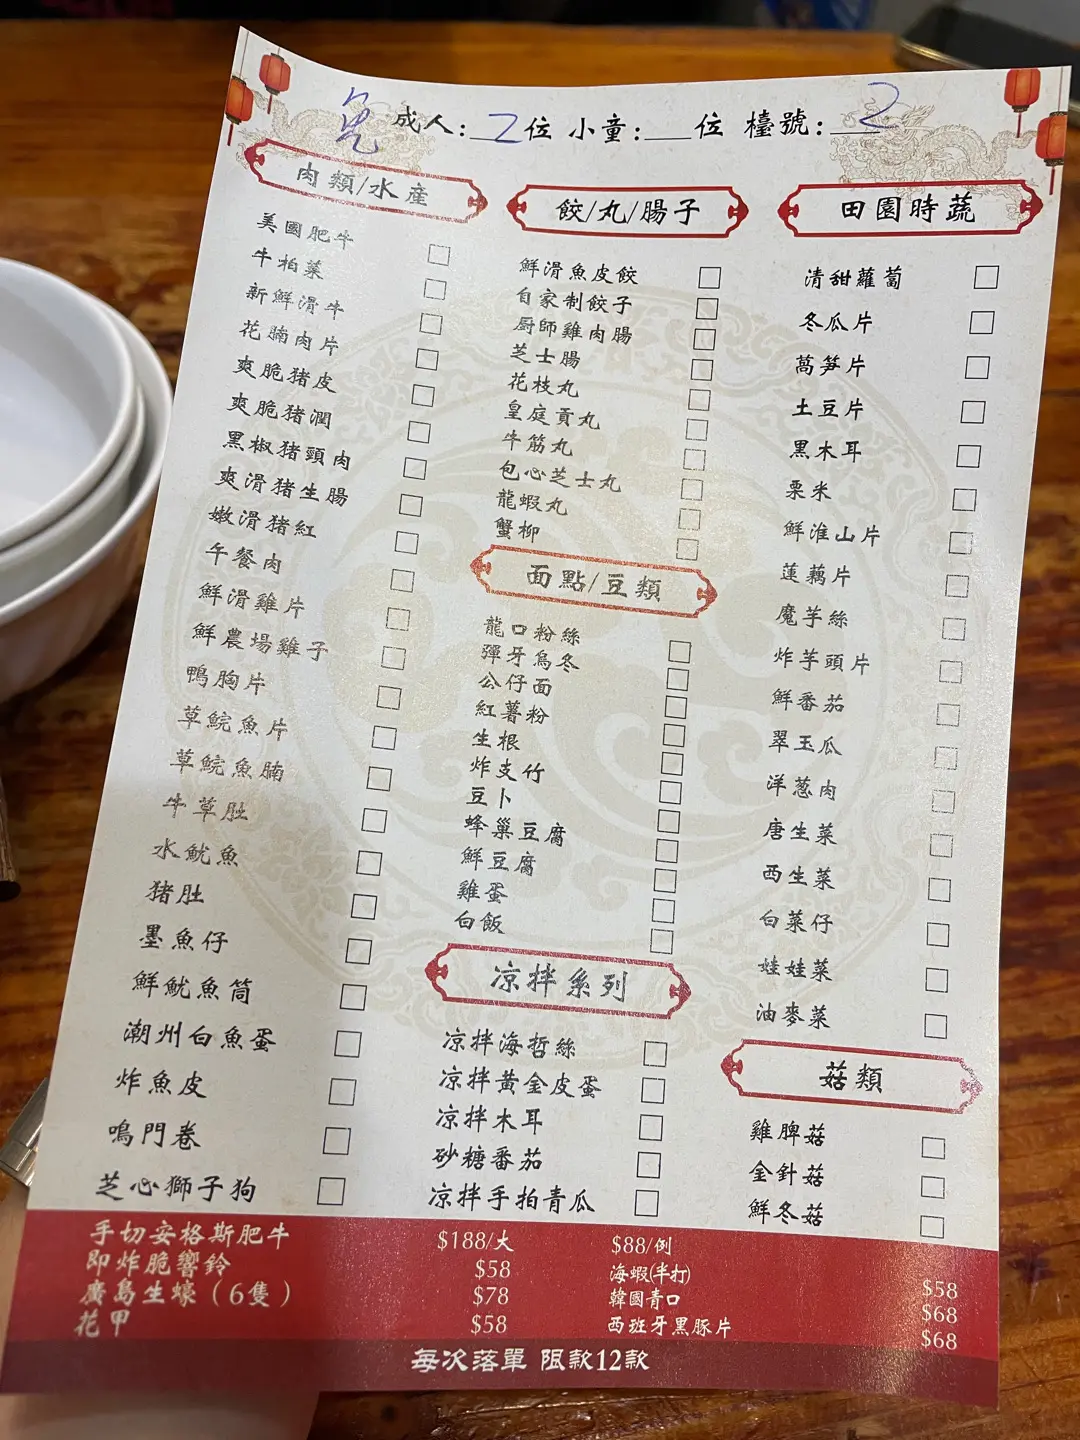 成人: 2 位 小童: 位 檯號: 2
肉類/水産
美國肥牛
牛柏葉
新鮮滑牛
花腩肉片
爽脆猪皮
爽脆猪潤
黑椒猪頸肉
爽滑猪生腸
嫩滑猪紅
午餐肉
鮮滑雞片
鮮農場雞子
鴨胸片
草鯇魚片
草鯇魚腩
牛草肚
水魷魚
猪肚
墨魚仔
鮮魷魚筒
潮州白魚蛋
炸魚皮
鳴門卷
芝心獅子狗
餃/丸/腸子
鮮滑魚皮餃
自家制餃子
厨師雞肉腸
芝士腸
花枝丸
皇庭貢丸
牛筋丸
包心芝士丸
龍蝦丸
蟹柳
面點/豆類
龍口粉絲
彈牙烏冬
公仔面
紅薯粉
生根
炸支竹
豆卜
蜂巢豆腐
鮮豆腐
雞蛋
白飯
凉拌系列
凉拌海哲絲
凉拌黃金皮蛋
凉拌木耳
砂糖番茄
凉拌手拍青瓜
田園時蔬
清甜蘿蔔
冬瓜片
萵笋片
土豆片
黑木耳
栗米
鮮淮山片
蓮藕片
魔芋絲
炸芋頭片
鮮番茄
翠玉瓜
洋葱肉
唐生菜
西生菜
白菜仔
娃娃菜
油麥菜
菇類
雞脾菇
金針菇
鮮冬菇
手切安格斯肥牛 $188/大 $88/例
即炸脆響鈴 $58
廣島生蠔（6隻） $78
花甲 $58
海蝦(半打) $58
韓國青口 $68
西班牙黑豚片 $68
每次落單 限款12款